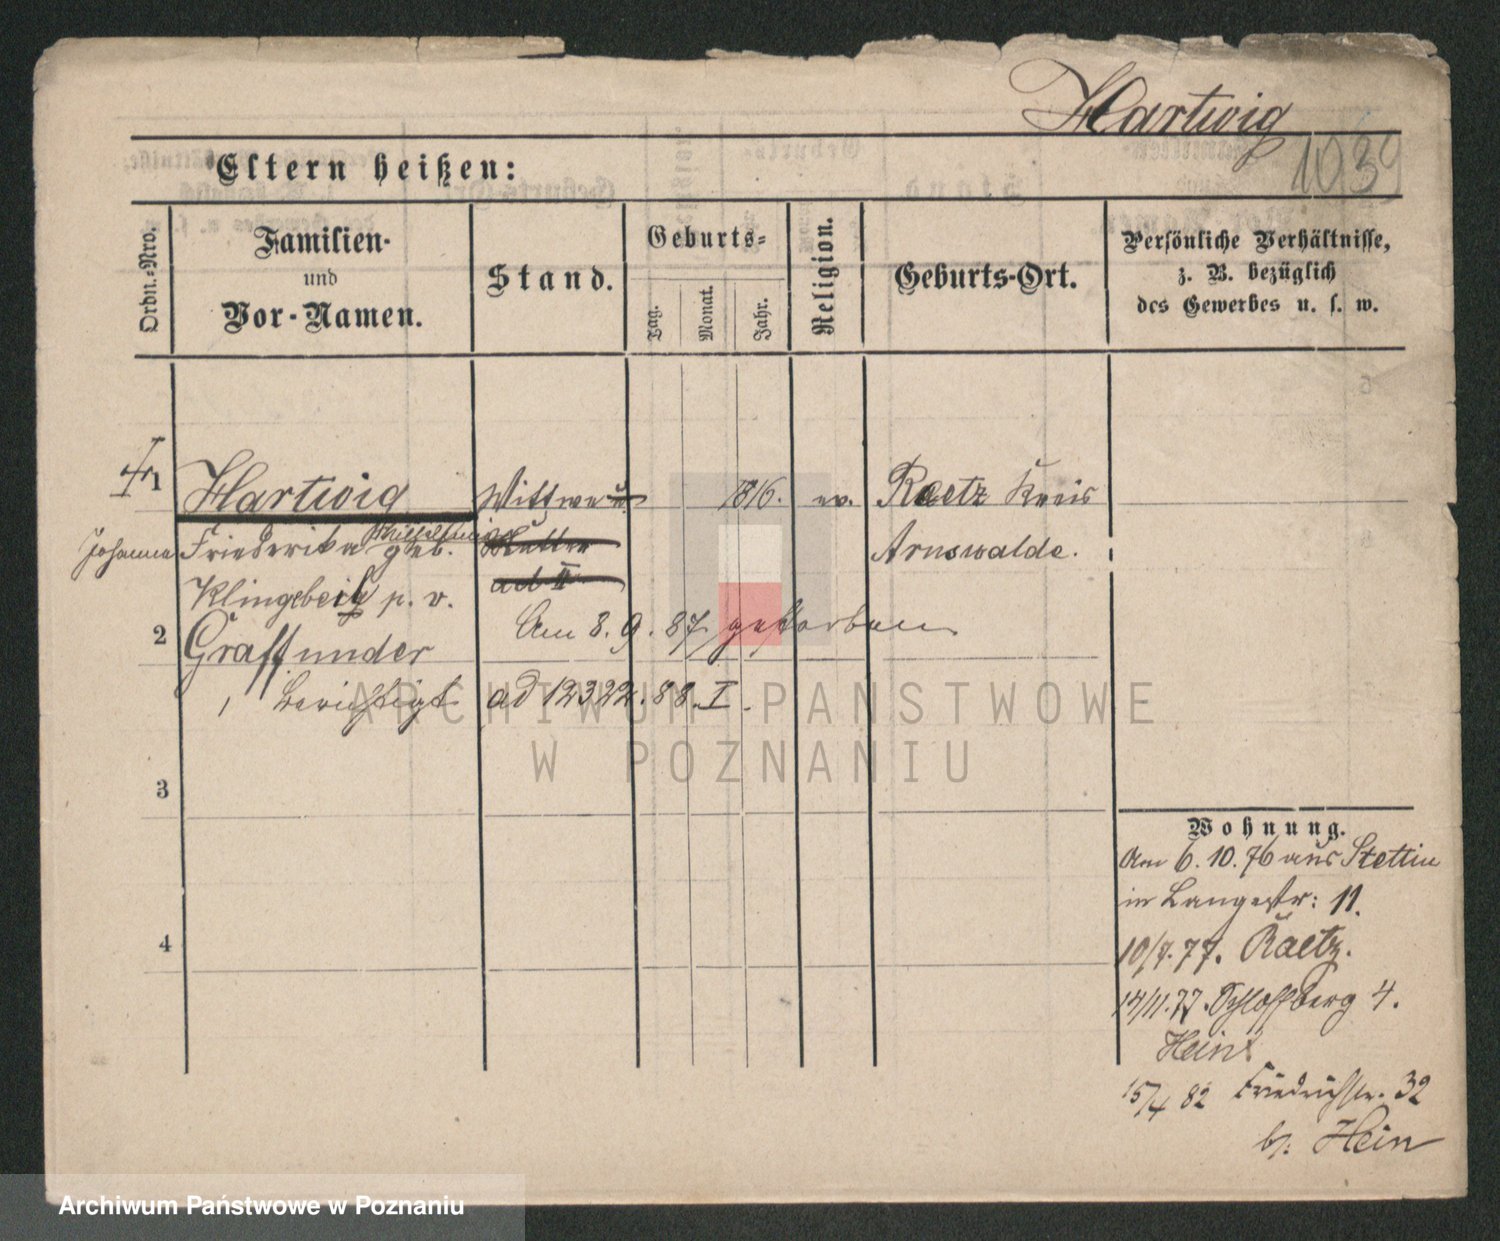 Hartwig
1039
Eltern heißen:
Ordn.-Nro.
Familien-
und
Vor-Namen.
Stand.
Geburts-
Tag.
Monat.
Jahr.
Religion.
Geburts-Ort.
Persönliche Verhältnisse,
z. B. bezüglich
des Gewerbes u. s. w.
1
Hartwig
Wittwe u
1816.
ev.
Raetz Kreis
Johanna Friederika Wilhelmine geb.
Mutter
Arnswalde.
Klingebeil p. v.
ad II
2
Graffunder
Am 8. 9. 87 gestorben
Berichtigt ad 12322.88.I.
3
4
Wohnung.
Am 6.10.76 aus Stettin
in Langestr: 11.
10/7.77. Raetz.
14/11.77. Schloßberg 4.
Hein
15/4 82 Friedrichstr. 32
b/. Hein
ARCHIWUM PAŃSTWOWE
W POZNANIU
Archiwum Państwowe w Poznaniu